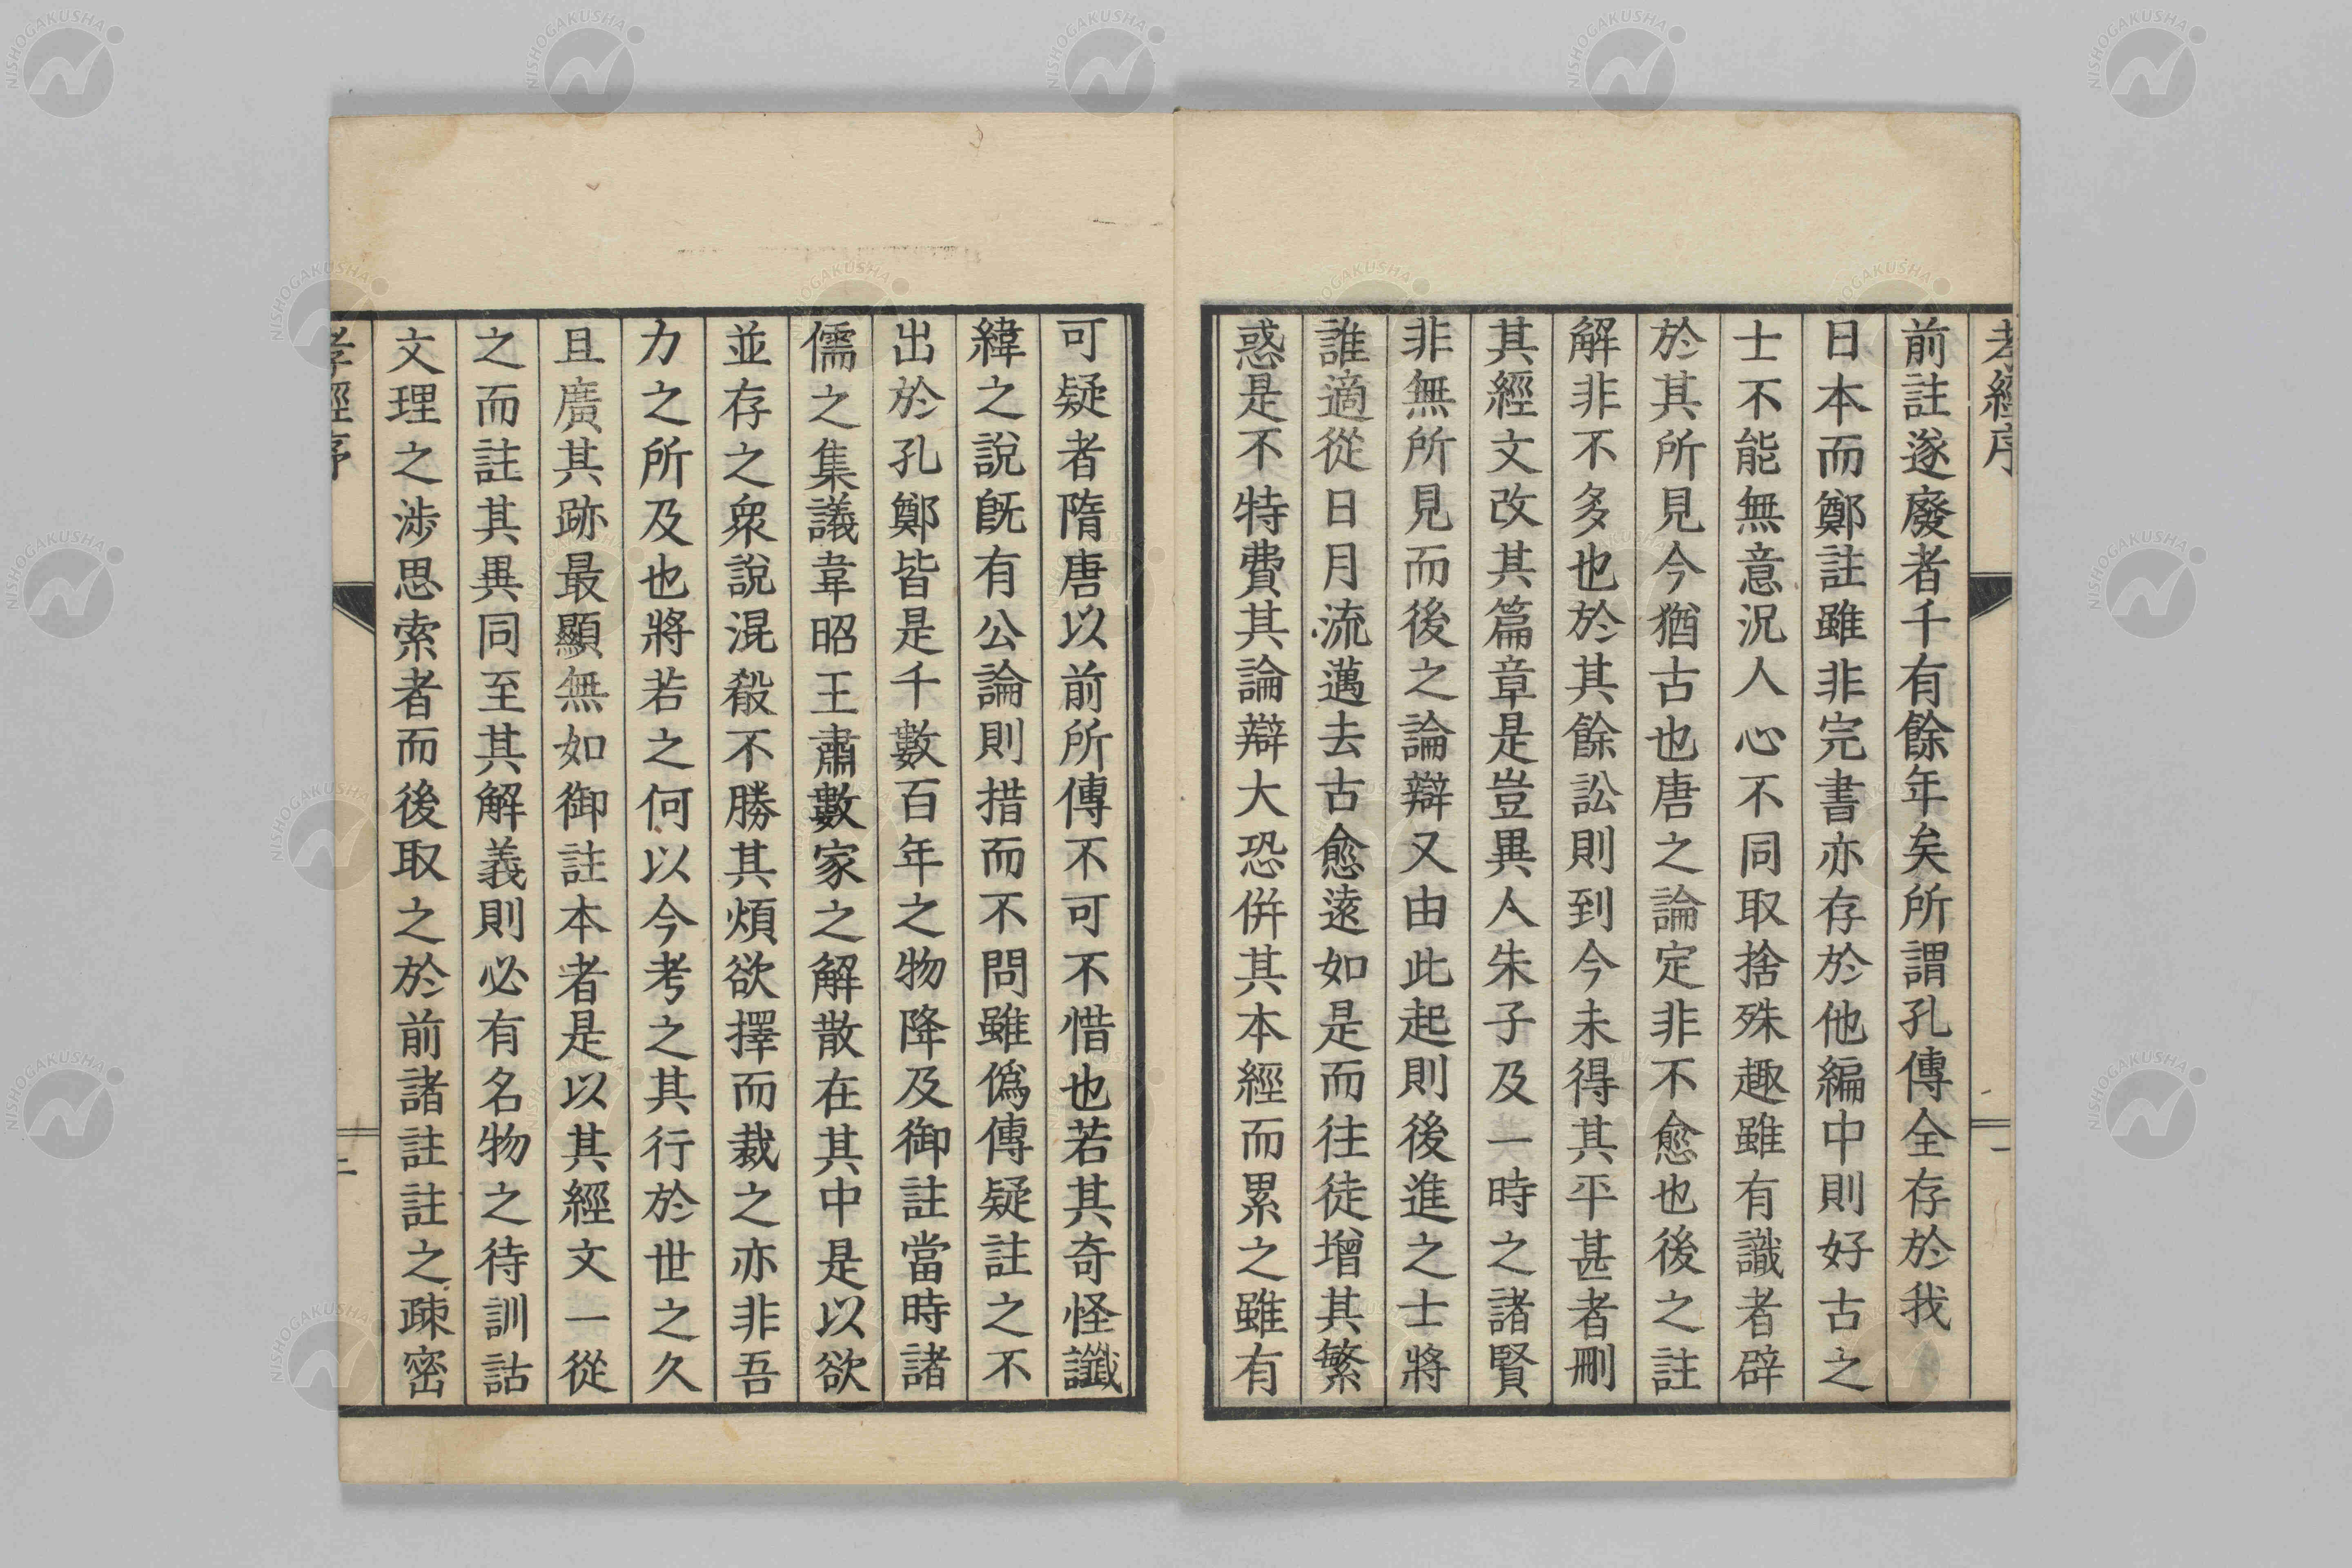 孝經序
前註遂廢者千有餘年矣所謂孔傳全存於我
日本而鄭註雖非完書亦存於他編中則好古之
士不能無意況人心不同取捨殊趣雖有識者辟
於其所見今猶古也唐之論定非不愈也後之註
解非不多也於其餘訟則到今未得其平甚者刪
其經文改其篇章是豈異人朱子及一時之諸賢
非無所見而後之論辯又由此起則後進之士將
誰適從日月流邁去古愈遠如是而往徒增其繁
惑是不特費其論辯大恐併其本經而累之雖有
一
可疑者隋唐以前所傳不可不惜也若其奇怪讖
緯之說既有公論則措而不問雖偽傳疑註之不
出於孔鄭皆是千數百年之物降及御註當時諸
儒之集議韋昭王肅數家之解散在其中是以欲
並存之衆說混殽不勝其煩欲擇而裁之亦非吾
力之所及也將若之何以今考之其行於世之久
且廣其跡最顯無如御註本者是以其經文一從
之而註其異同至其解義則必有名物之待訓詁
文理之涉思索者而後取之於前諸註註之疎密
孝經序
NISHOGAKUSHA